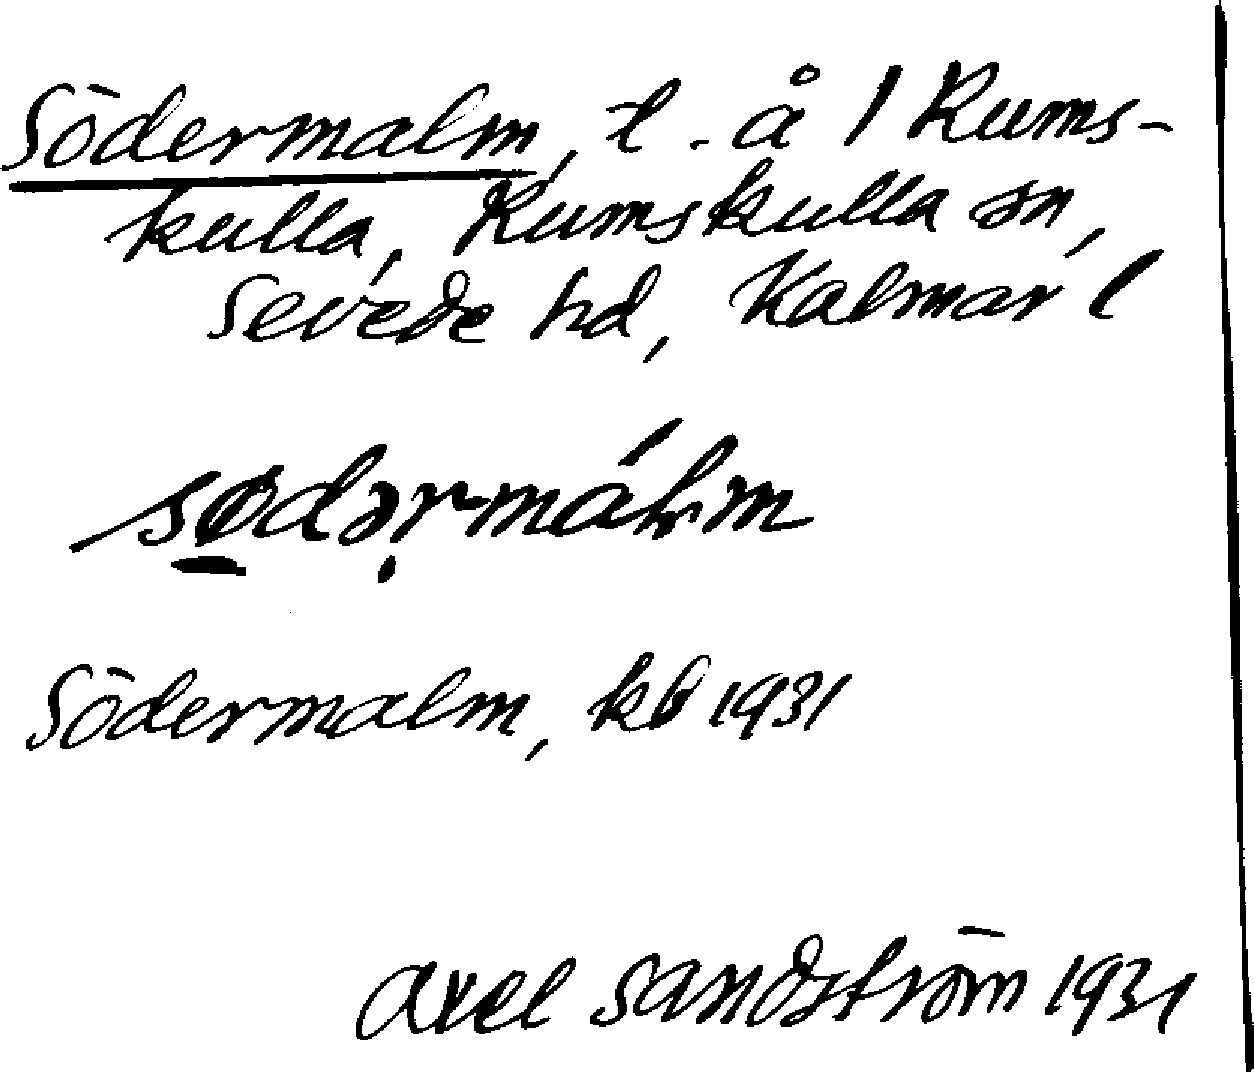 Södermalm, t. å 1 Rums-
kulla, Rumskulla sn,
Sevede hd, Kalmar l
Södermalm, kb 1931
Axel Sandström 1931